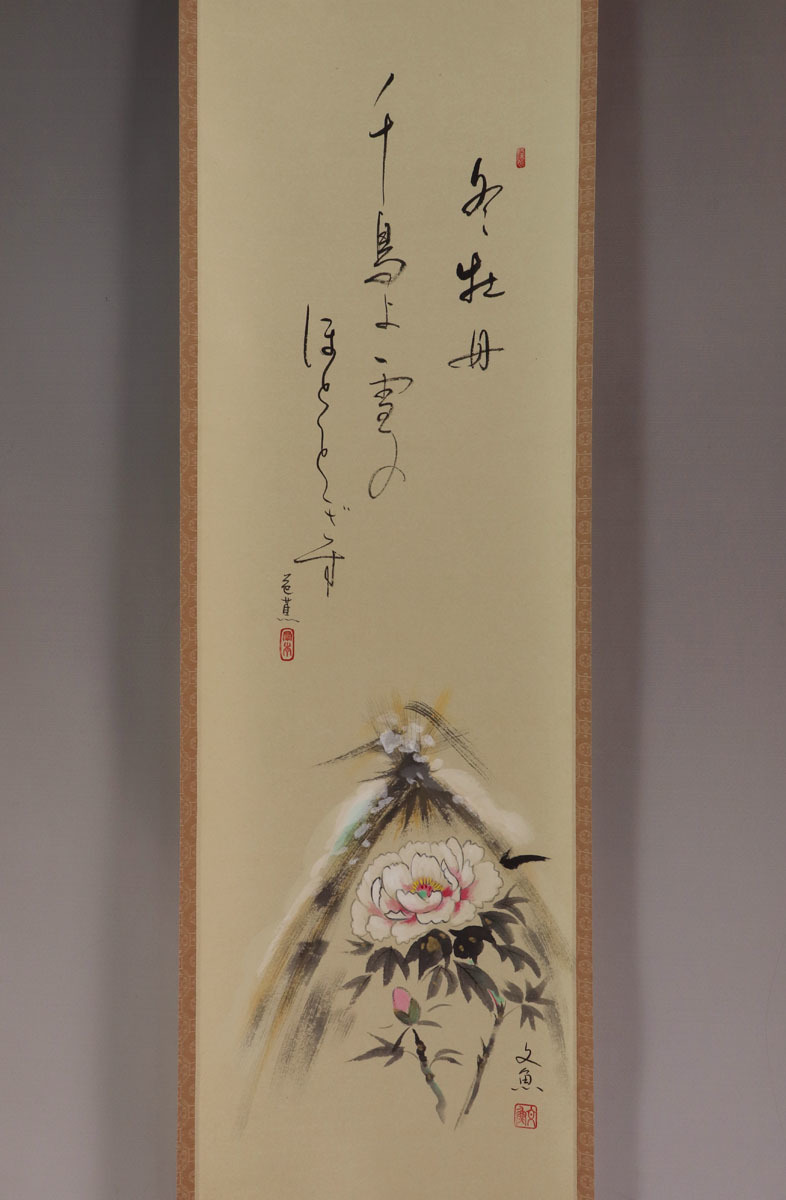 冬牡丹
千鳥よ雪の
ほとゝぎす
芭蕉
文魚